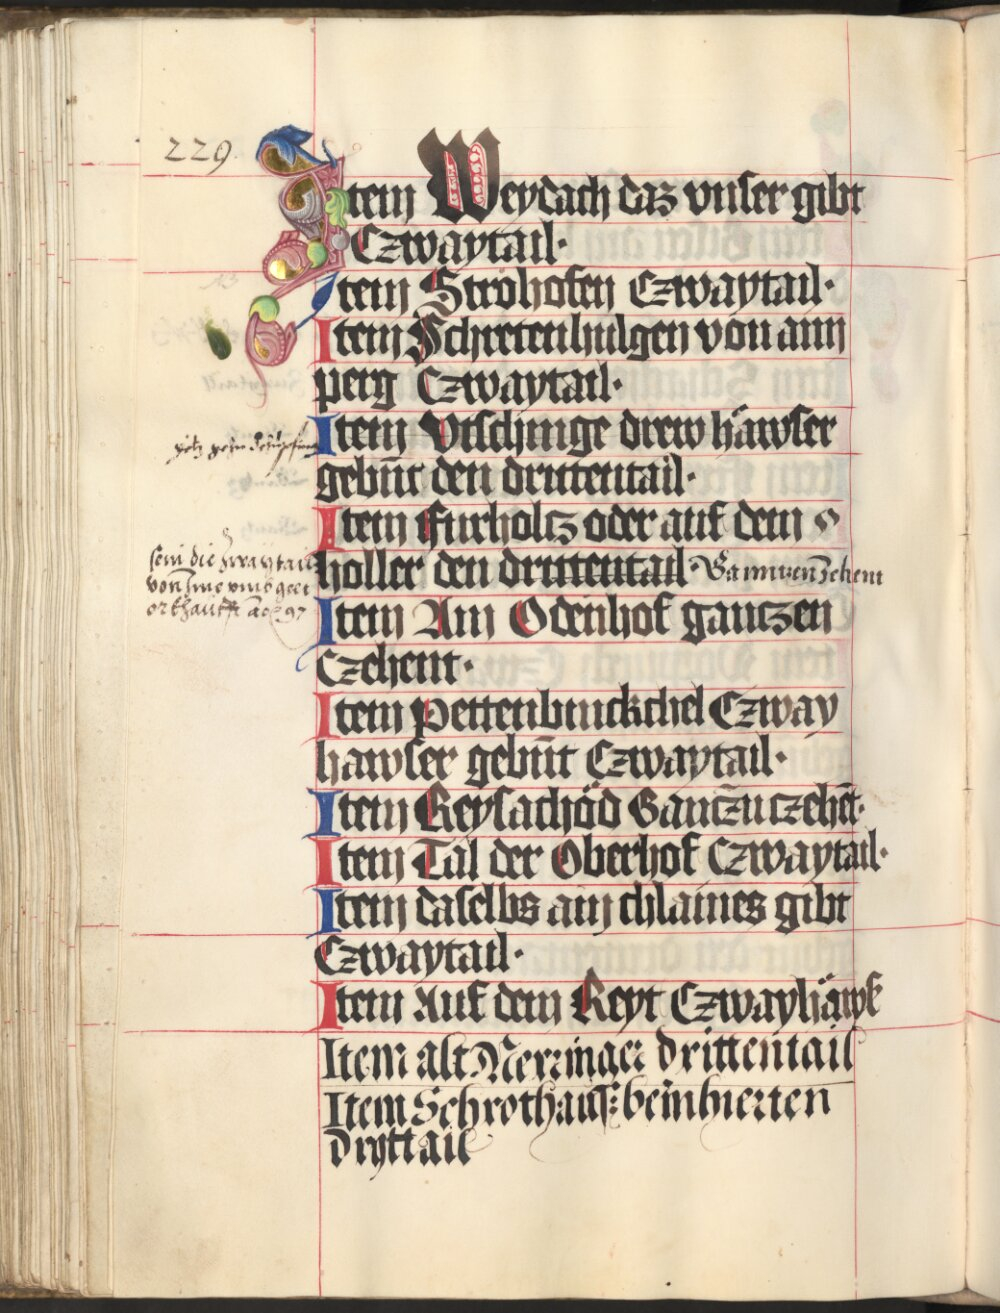 229
Item Weydach daz vnser gibt
Czwaytail·
Item Ströhofen Czwaytail·
Item Schretenhulgen von ann
perg Czwaytail·
Item Vtschinge drew häwser
gebn̄t den drittentail·
Item Furholtz oder auf dem
holler den drittentail· Ganntzen Zehent
sein die zwaytail
von
Item Am Odenhof gantzen
Czehent·
Item Pettenbruckchel Czway
hawser gebn̄t Czwaytail·
Item Reysachöd Gancz̄n czehēt·
Item Tal der Oberhof Czwaytail·
Item daselbs ain chlaines gibt
Czwaytail·
Item Auf dem Reyt Czwayhäws
Item alt Nerzinger drittentail
Item Schrothauss: beinhierten
dryttail